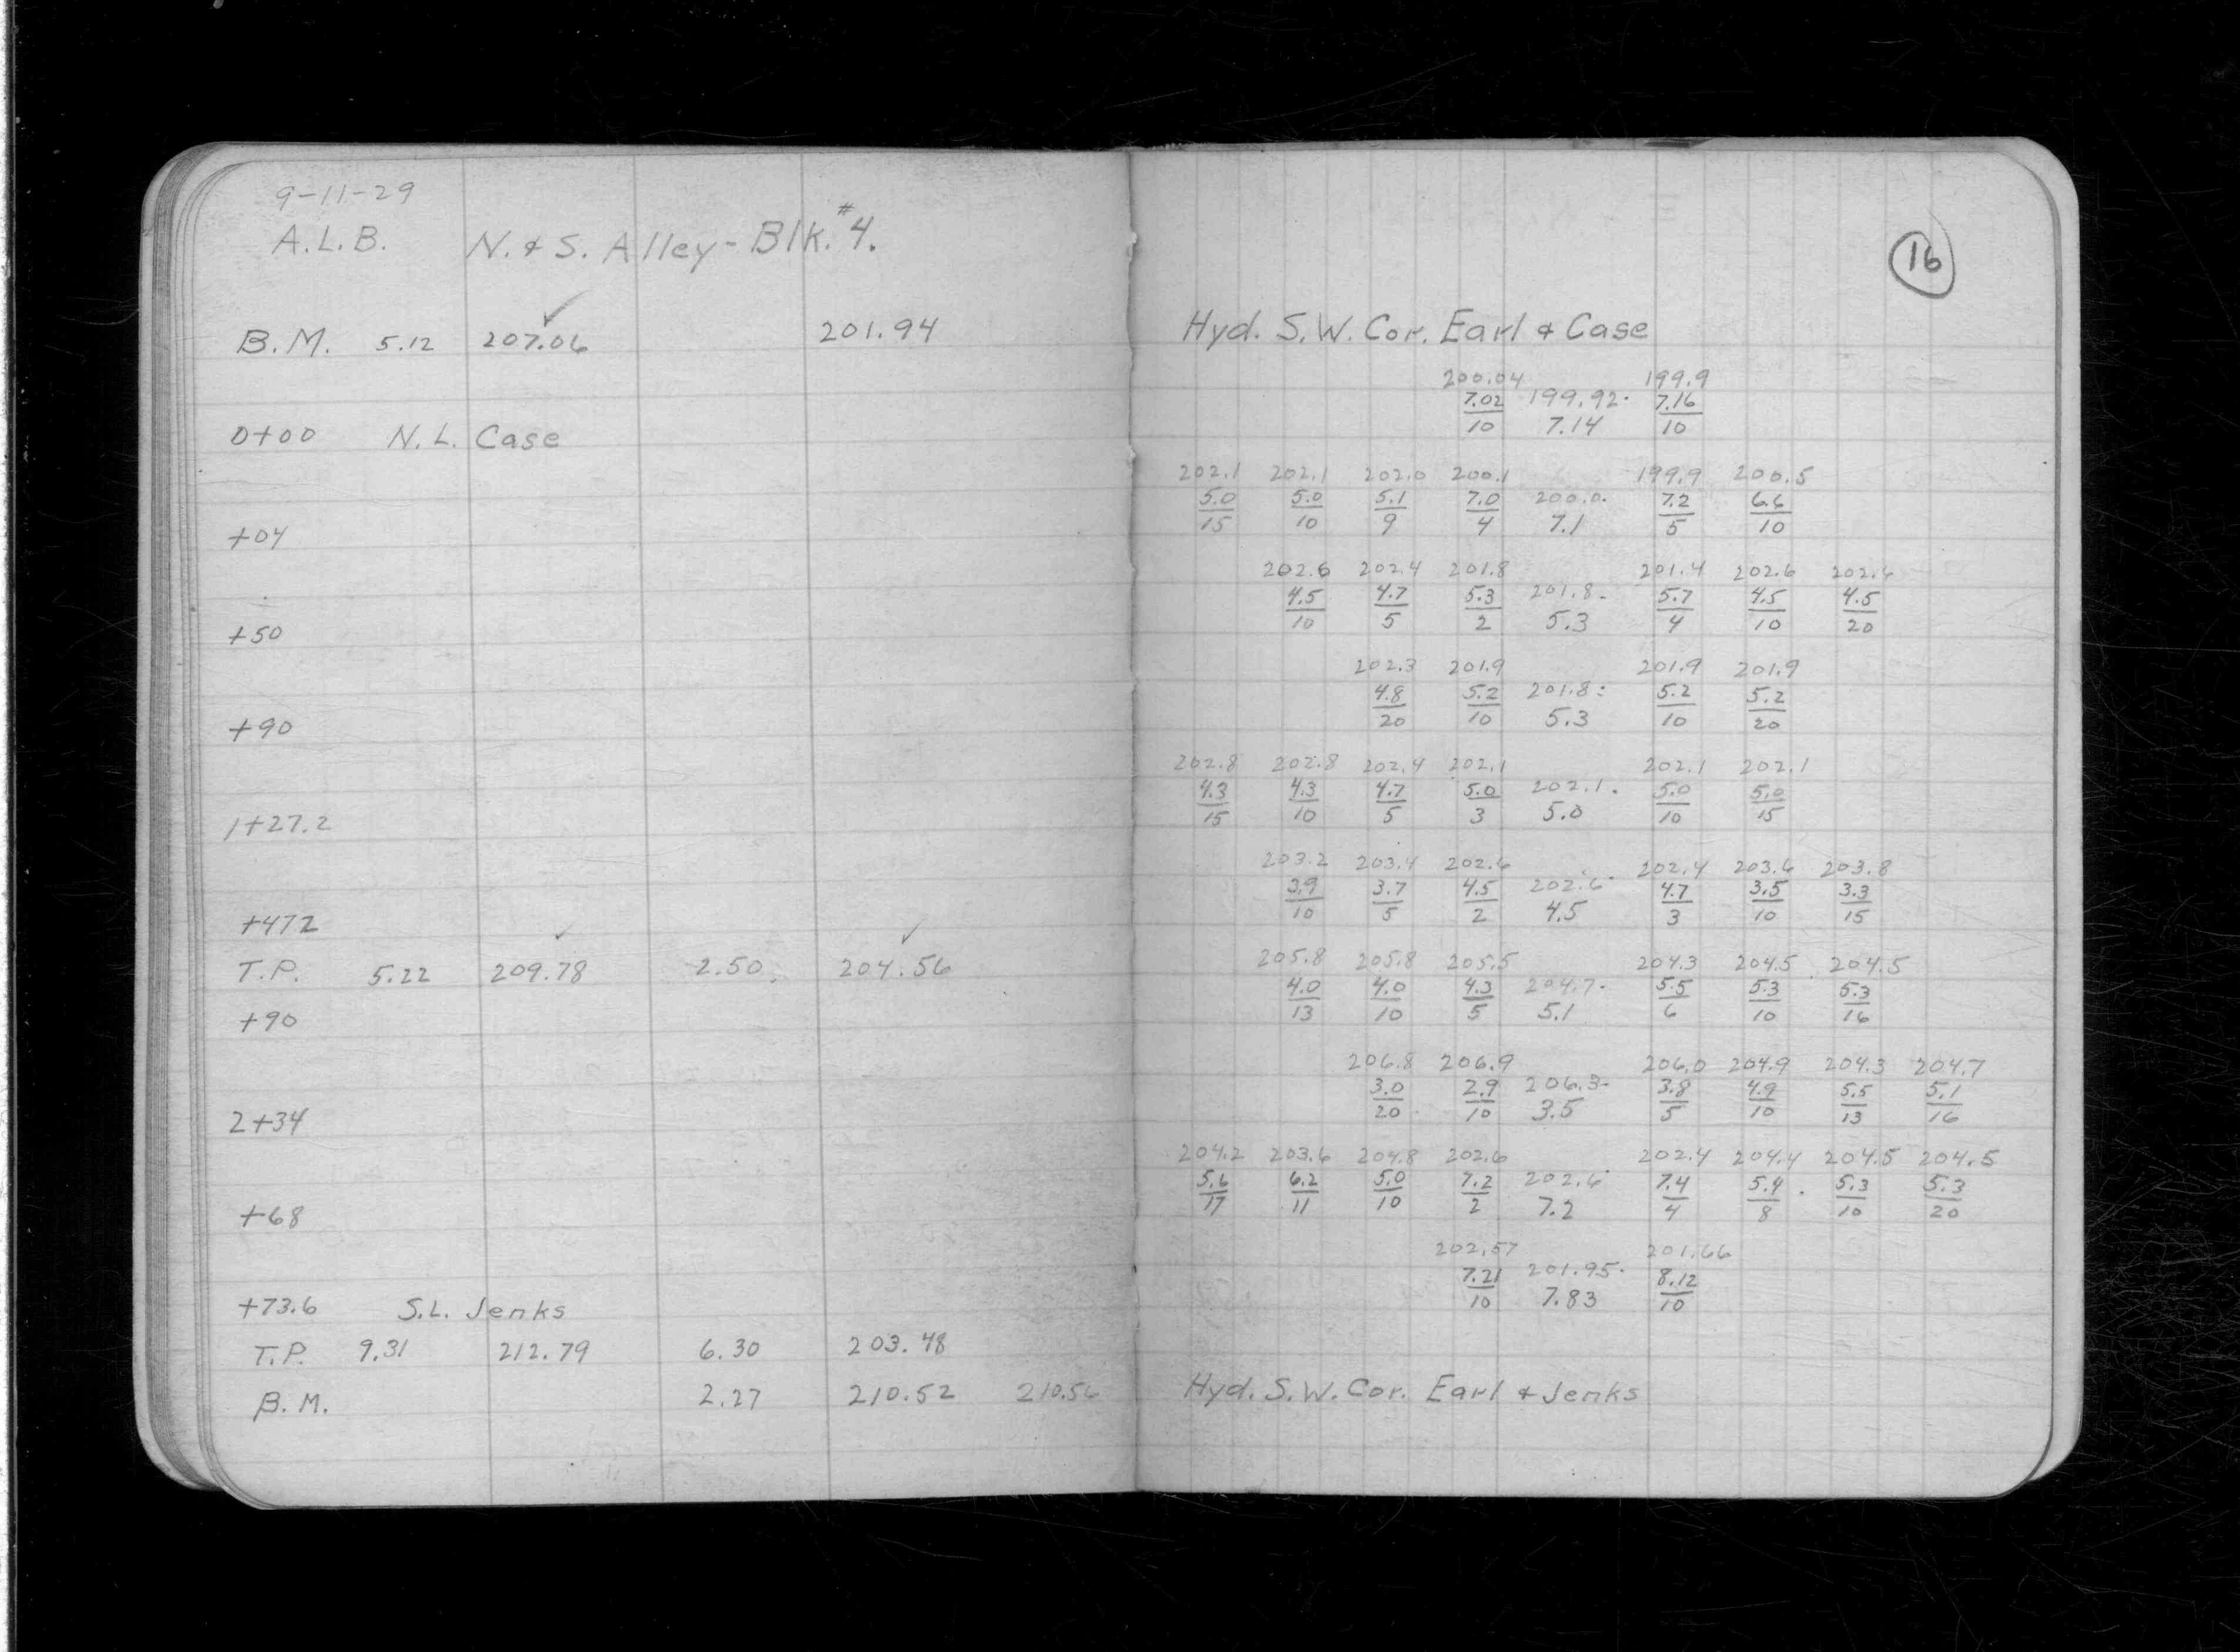 9-11-29
A.L.B. N. & S. Alley - Blk. #4.
16
B.M. 5.12 207.06 ✓ 201.94 Hyd. S.W. Cor. Earl & Case
200.04 199.9
7.02 199.92. 7.16
0+00 N.L. Case 10 7.14 10
202.1 202.1 202.0 200.1 199.9 200.5
5.0 5.0 5.1 7.0 200.0. 7.2 6.6
+04 15 10 9 4 7.1 5 10
202.6 202.4 201.8 201.4 202.6 202.6
4.5 4.7 5.3 201.8. 5.7 4.5 4.5
+50 10 5 2 5.3 4 10 20
202.3 201.9 201.9 201.9
4.8 5.2 201.8: 5.2 5.2
+90 20 10 5.3 10 20
202.8 202.8 202.4 202.1 202.1 202.1
4.3 4.3 4.7 5.0 202.1. 5.0 5.0
1+27.2 15 10 5 3 5.0 10 15
203.2 203.4 202.6 202.4 203.6 203.8
3.9 3.7 4.5 202.6. 4.7 3.5 3.3
+47.2 10 5 2 4.5 3 10 15
T.P. 5.22 209.78 ✓ 2.50 204.56 ✓ 205.8 205.8 205.5 204.3 204.5 204.5
4.0 4.0 4.3 204.7. 5.5 5.3 5.3
+90 13 10 5 5.1 6 10 16
206.8 206.9 206.0 204.9 204.3 204.7
3.0 2.9 206.3. 3.8 4.9 5.5 5.1
2+34 20 10 3.5 5 10 13 16
204.2 203.6 204.8 202.6 202.4 204.4 204.5 204.5
5.6 6.2 5.0 7.2 202.6. 7.4 5.4 5.3 5.3
+68 17 11 10 2 7.2 4 8 10 20
202.57 201.66
7.21 201.95. 8.12
+73.6 S.L. Jenks 10 7.83 10
T.P. 9.31 212.79 6.30 203.48
B.M. 2.27 210.52 210.56 Hyd. S.W. Cor. Earl & Jenks